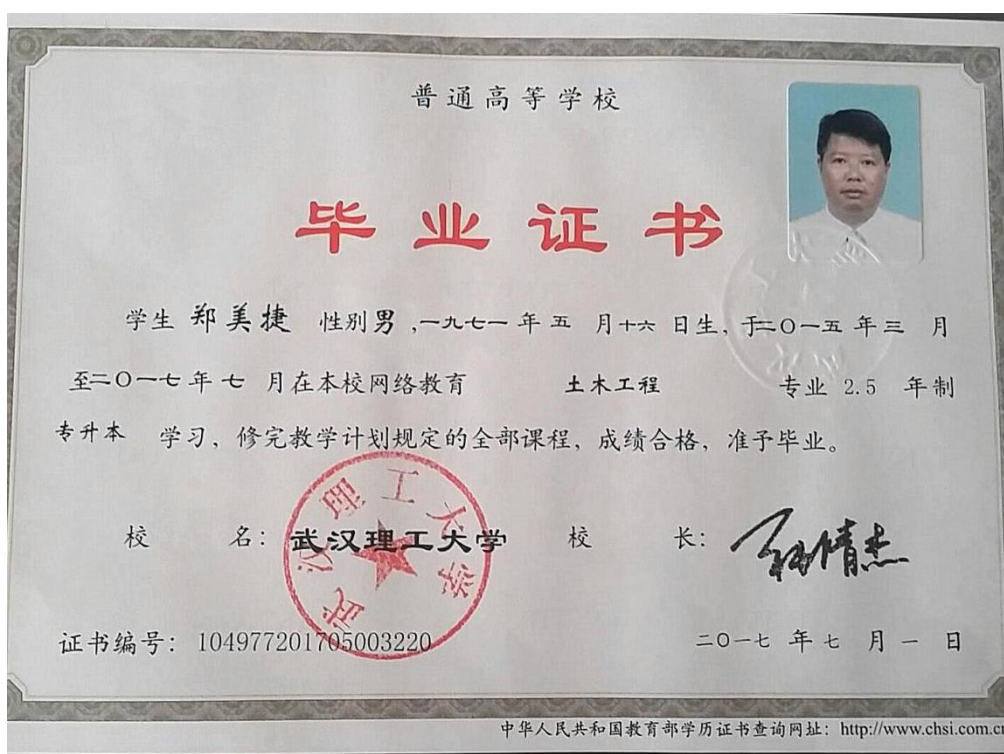 普通高等学校
毕业证书
学生 郑美捷 性别男，一九七一年五月十六日生，于二〇一五年三月
至二〇一七年七月在本校网络教育 土木工程 专业 2.5 年制
专升本 学习，修完教学计划规定的全部课程，成绩合格，准予毕业。
校 名：武汉理工大学 校 长：
武汉理工大学
证书编号：104977201705003220 二〇一七年七月一日
中华人民共和国教育部学历证书查询网址：http://www.chsi.com.c